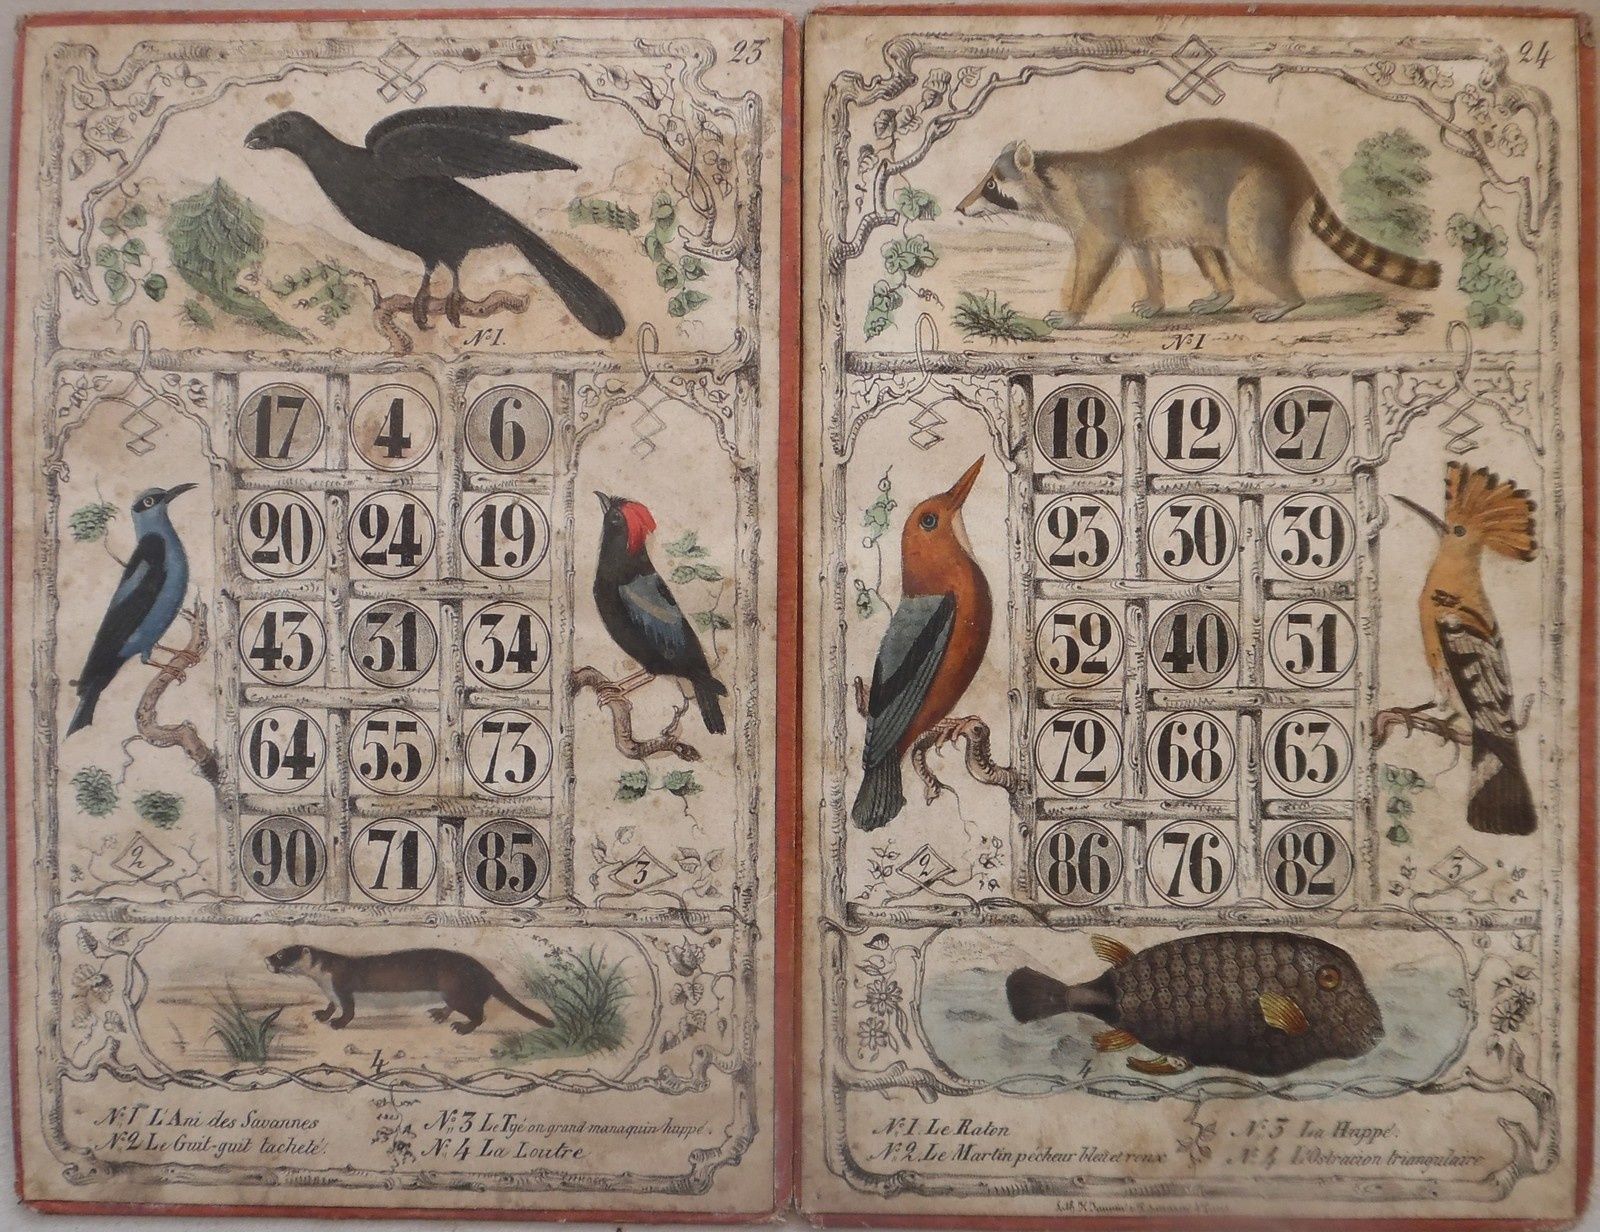 23
N.º 1.
17 4 6
20 24 19
43 31 34
64 55 73
90 71 85
2
3
4
N.º 1 L'Ani des Savannes
N.º 2 Le Guit-guit tacheté.
N.º 3 Le Tijé ou grand manaquin huppé.
N.º 4 La Loutre
24
N.º 1
18 12 27
23 30 39
52 40 51
72 68 63
86 76 82
2
3
4
N.º 1. Le Raton
N.º 2. Le Martin pêcheur bleu et roux
N.º 3 La Huppé.
N.º 4 L'Ostracion triangulaire
Lith